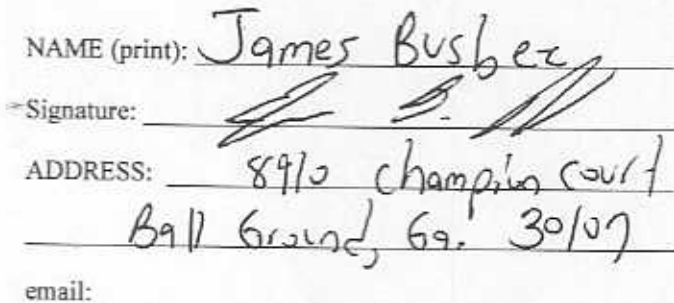 NAME (print): James Busbee
Signature:
ADDRESS: 8910 Champion Court
Ball Ground, Ga. 30107
email: